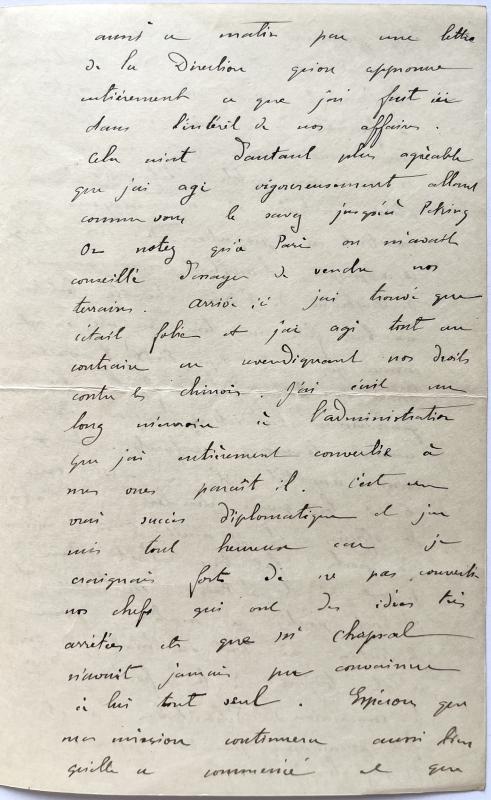 aussi ce matin par une lettre
de la Direction qu'on approuve
entièrement ce que j'ai fait ici
dans l'intérêt de nos affaires.
Cela m'est d'autant plus agréable
que j'ai agi vigoureusement allant
comme vous le savez jusqu'à Peking
Or notez qu'à Paris on m'avait
conseillé d'essayer de vendre nos
terrains. Arrivé ici j'ai trouvé que
c'était folie et j'ai agi tout au
contraire en revendiquant nos droits
contre les chinois. J'ai écrit un
long mémoire à l'administration
que j'ai entièrement convertie à
mes vues paraît il. C'est un
vrai succès diplomatique et j'en
suis tout heureux car je
craignais fort de ne pas convertir
nos chefs qui ont des idées très
arrêtées et que Mr Chapsal
n'avait jamais pu convaincre
à lui tout seul. Espérons que
ma mission continuera aussi bien
qu'elle a commencé et que